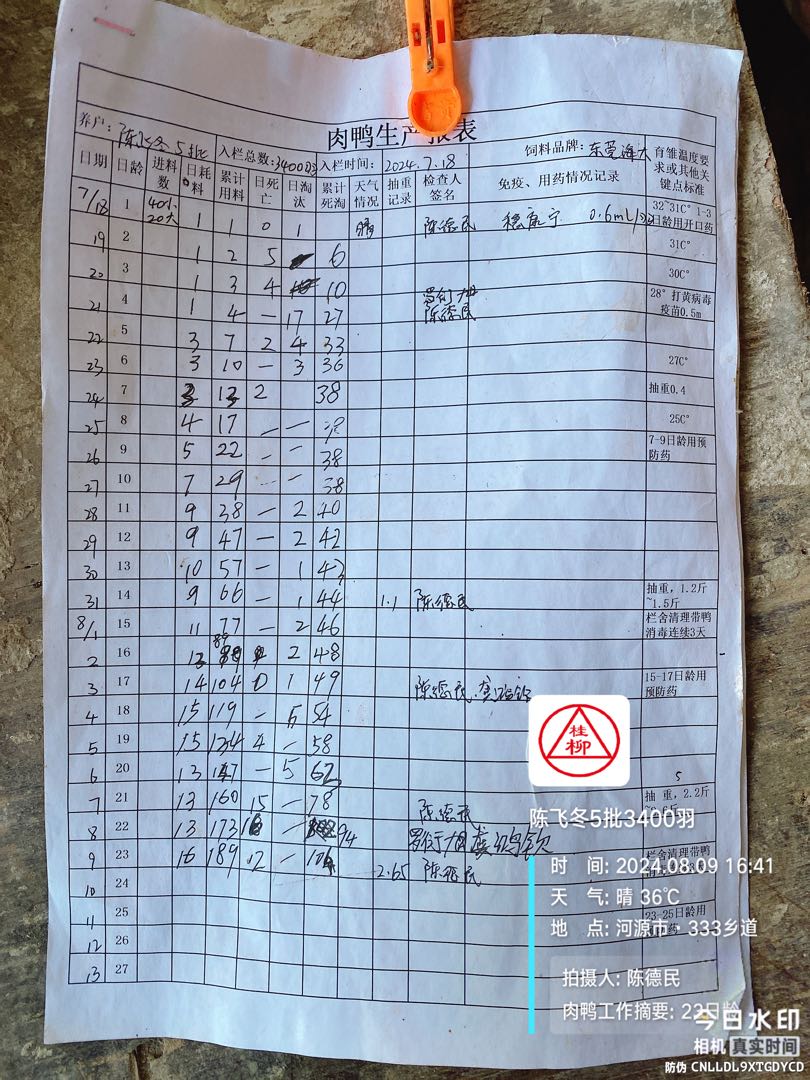 肉鸭生产报表
养户: 陈飞冬5批 入栏总数:3400羽 入栏时间: 2024.7.18 饲料品牌: 东莞海大
日期 日龄 进料数 日耗料 累计用料 日死亡 日淘汰 累计死淘 天气情况 抽重记录 检查人签名 免疫、用药情况记录 育雏温度要求或其他关键点标准
7/18 1 40小 20大 1 1 0 1 晴 陈德民 0.6mL 32~31C° 1-3日龄用开口药
19 2 1 2 5 6 31C°
20 3 1 3 4 10 30C°
21 4 1 4 — 17 27 陈德民 28° 打黄病毒疫苗0.5m
22 5 3 7 2 4 33
23 6 3 10 — 3 36 27C°
24 7 3 13 2 38 抽重0.4
25 8 4 17 — — 38 25C°
26 9 5 22 — — 38 7-9日龄用预防药
27 10 7 29 — — 38
28 11 9 38 — 2 40
29 12 9 47 — 2 42
30 13 10 57 — 1 43
31 14 9 66 — 1 44 1.1 陈德民 抽重，1.2斤~1.5斤
8/1 15 11 77 — 2 46 栏舍清理带鸭消毒连续3天
2 16 13 2 48
3 17 14 104 0 1 49 陈德民 15-17日龄用预防药
4 18 15 119 — 5 54
5 19 15 134 4 — 58
6 20 13 147 — 5 63 5
7 21 13 160 15 — 78 陈德民 抽重，2.2斤
8 22 13 173 16 — 94
9 23 16 189 12 — 106 2.65 陈德民 栏舍清理带鸭
10 24
11 25 23-25日龄用
12 26
13 27
桂柳
陈飞冬5批3400羽
时 间: 2024.08.09 16:41
天 气: 晴 36℃
地 点: 河源市·333乡道
拍摄人: 陈德民
肉鸭工作摘要: 23日龄
今日水印
相机 真实时间
防伪 CNLLDL9XTGDYCD